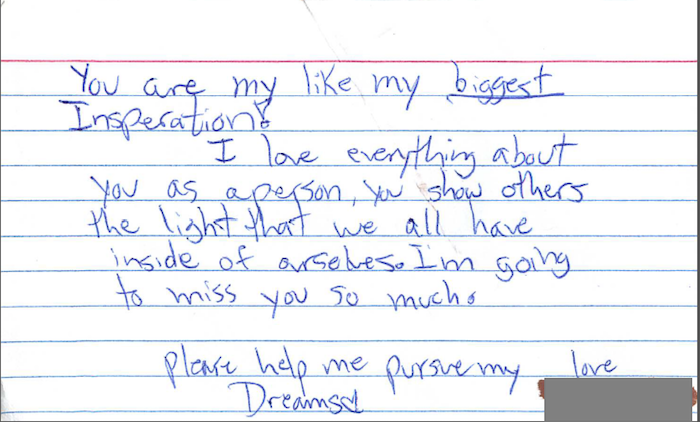 You are my like my biggest
Insperation!
I love everything about
you as a person, you show others
the light that we all have
inside of ourselves. I'm going
to miss you so much.
please help me pursue my love
Dreams